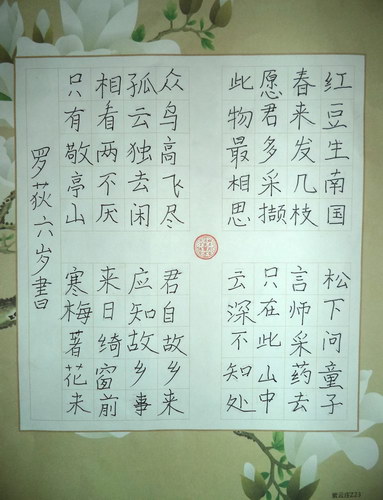 红豆生南国
春来发几枝
愿君多采撷
此物最相思
众鸟高飞尽
孤云独去闲
相看两不厌
只有敬亭山
松下问童子
言师采药去
只在此山中
云深不知处
君自故乡来
应知故乡事
来日绮窗前
寒梅著花未
罗荻六岁書